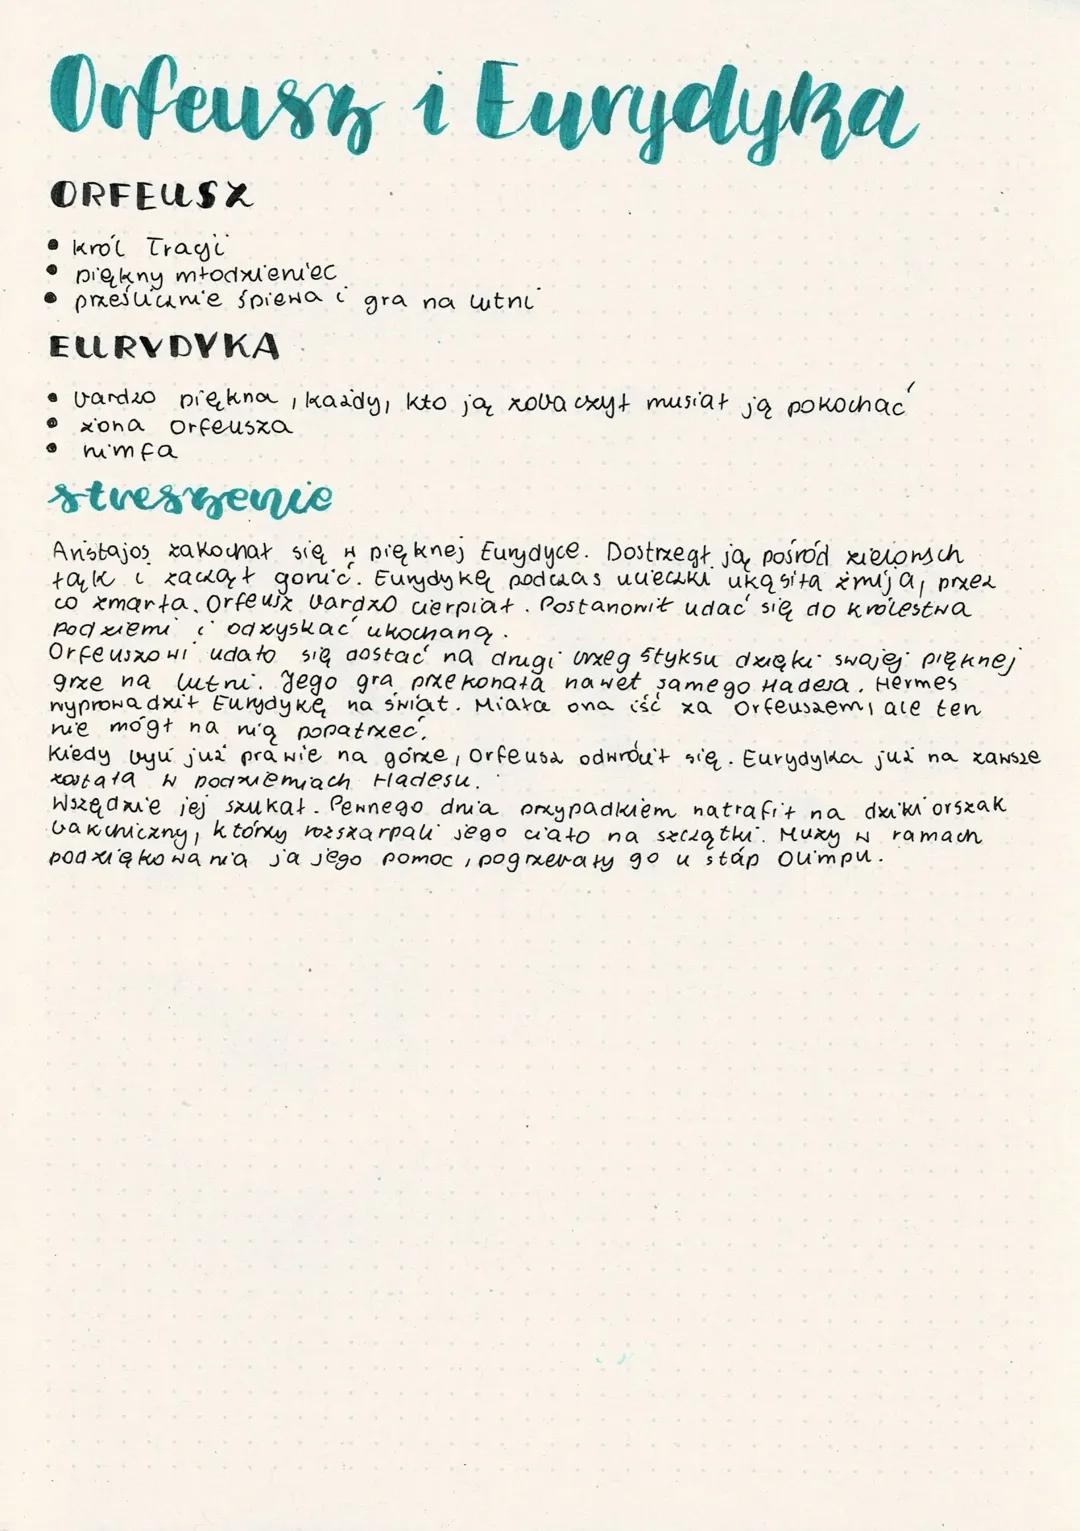 Orfeusz i Eurydyka
ORFEUSZ
• król Tracji
• piękny młodzieniec
• prześlicznie śpiewa i gra na lutni
EURYDYKA
• bardzo piękna, każdy, kto ją zobaczył musiał ją pokochać
• żona Orfeusza
• nimfa
streszenie
Aristajos zakochał się w pięknej Eurydyce. Dostrzegł ją pośród zielonsch
łąk i zaczął gonić. Eurydykę podczas ucieczki ukąsiła żmija, przez
co zmarła. Orfeusz bardzo cierpiał. Postanowił udać się do królestwa
podziemi i odzyskać ukochaną.
Orfeuszowi udało się dostać na drugi brzeg Styksu dzięki swojej pięknej
grze na lutni. Jego gra przekonała nawet samego Hadesa. Hermes
wyprowadził Eurydykę na świat. Miała ona iść za Orfeuszem, ale ten
nie mógł na nią popatrzeć.
Kiedy byli już prawie na górze, Orfeusz odwrócił się. Eurydyka już na zawsze
została w podziemiach Hadesu.
Wszędzie jej szukał. Pewnego dnia przypadkiem natrafił na dziki orszak
bakchiczny, którzy rozszarpali jego ciało na szczątki. Muzy w ramach
podziękowania ja jego pomoc, pogrzebały go u stóp Olimpu.